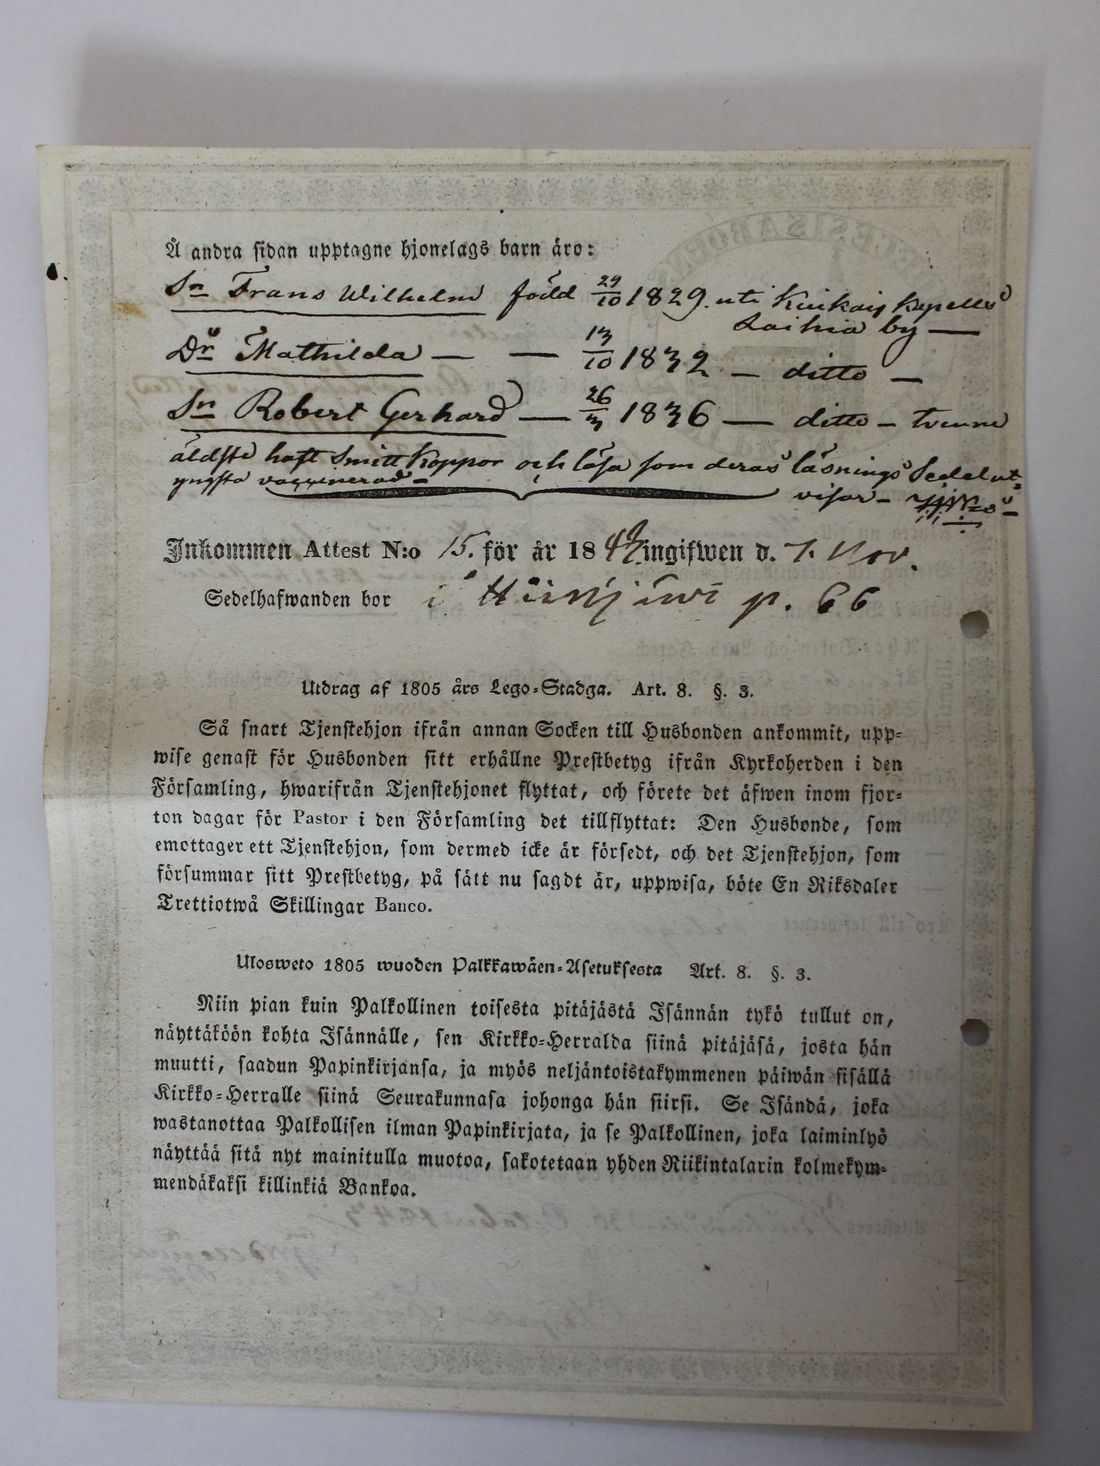 Å andra sidan upptagne hjonelags barn äro:
Sn Frans Wilhelm född 29/10 1829. uti Kiukais Kapells
Laihia by —
Dr Mathilda — — 13/10 1832 — ditto —
Sn Robert Gerhard — 26/3 1836 — ditto — tvenne
äldste haft Smitt Koppor och läsa som deras läsnings Sedel ut=
yngsta vaccinerad — visar —
Inkommen Attest N:o 15. för år 1843 ingifwen d. 7. Nov.
Sedelhafwanden bor i p. 66
Utdrag af 1805 års Lego=Stadga. Art. 8. §. 3.
Så snart Tjenstehjon ifrån annan Socken till Husbonden ankommit, upp=
wise genast för Husbonden sitt erhållne Prestbetyg ifrån Kyrkoherden i den
Församling, hwarifrån Tjenstehjonet flyttat, och förete det äfwen inom fjor=
ton dagar för Pastor i den Församling det tillflyttat: Den Husbonde, som
emottager ett Tjenstehjon, som dermed icke är försedt, och det Tjenstehjon, som
försummar sitt Prestbetyg, på sätt nu sagdt är, uppwisa, böte En Riksdaler
Trettiotwå Skillingar Banco.
Ulosweto 1805 wuoden Palkkawäen=Asetuksesta Art. 8. §. 3.
Niin pian kuin Palkollinen toisesta pitäjästä Isännän tykö tullut on,
näyttäköön kohta Isännälle, sen Kirkko=Herralda siinä pitäjäsä, josta hän
muutti, saadun Papinkirjansa, ja myös neljäntoistakymmenen päiwän sisällä
Kirkko=Herralle siinä Seurakunnasa johonga hän siirsi. Se Isändä, joka
wastanottaa Palkollisen ilman Papinkirjata, ja se Palkollinen, joka laiminlyö
näyttää sitä nyt mainitulla muotoa, sakotetaan yhden Riikintalarin kolmekym=
mendäkaksi killinkiä Bankoa.